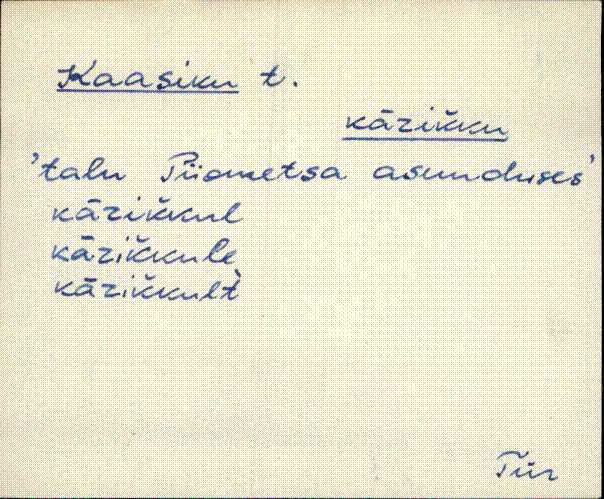 Kaasiku t.
kāzik̆ku
'talu Piiometsa asunduses'
kāzik̆kul
kāzik̆kule
kāzik̆kult̀
Tür